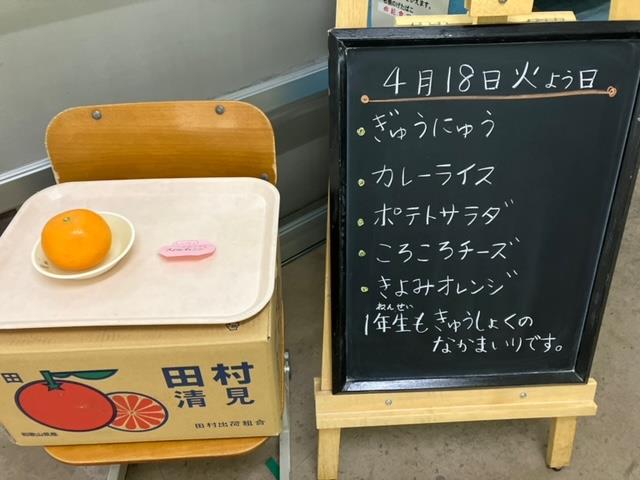 4月18日火よう日
ぎゅうにゅう
カレーライス
ポテトサラダ
ころころチーズ
きよみオレンジ
ねんせい
1年生もきゅうしょくの
なかまいりです。
田
田村
清見
田村出荷組合
和歌山県産